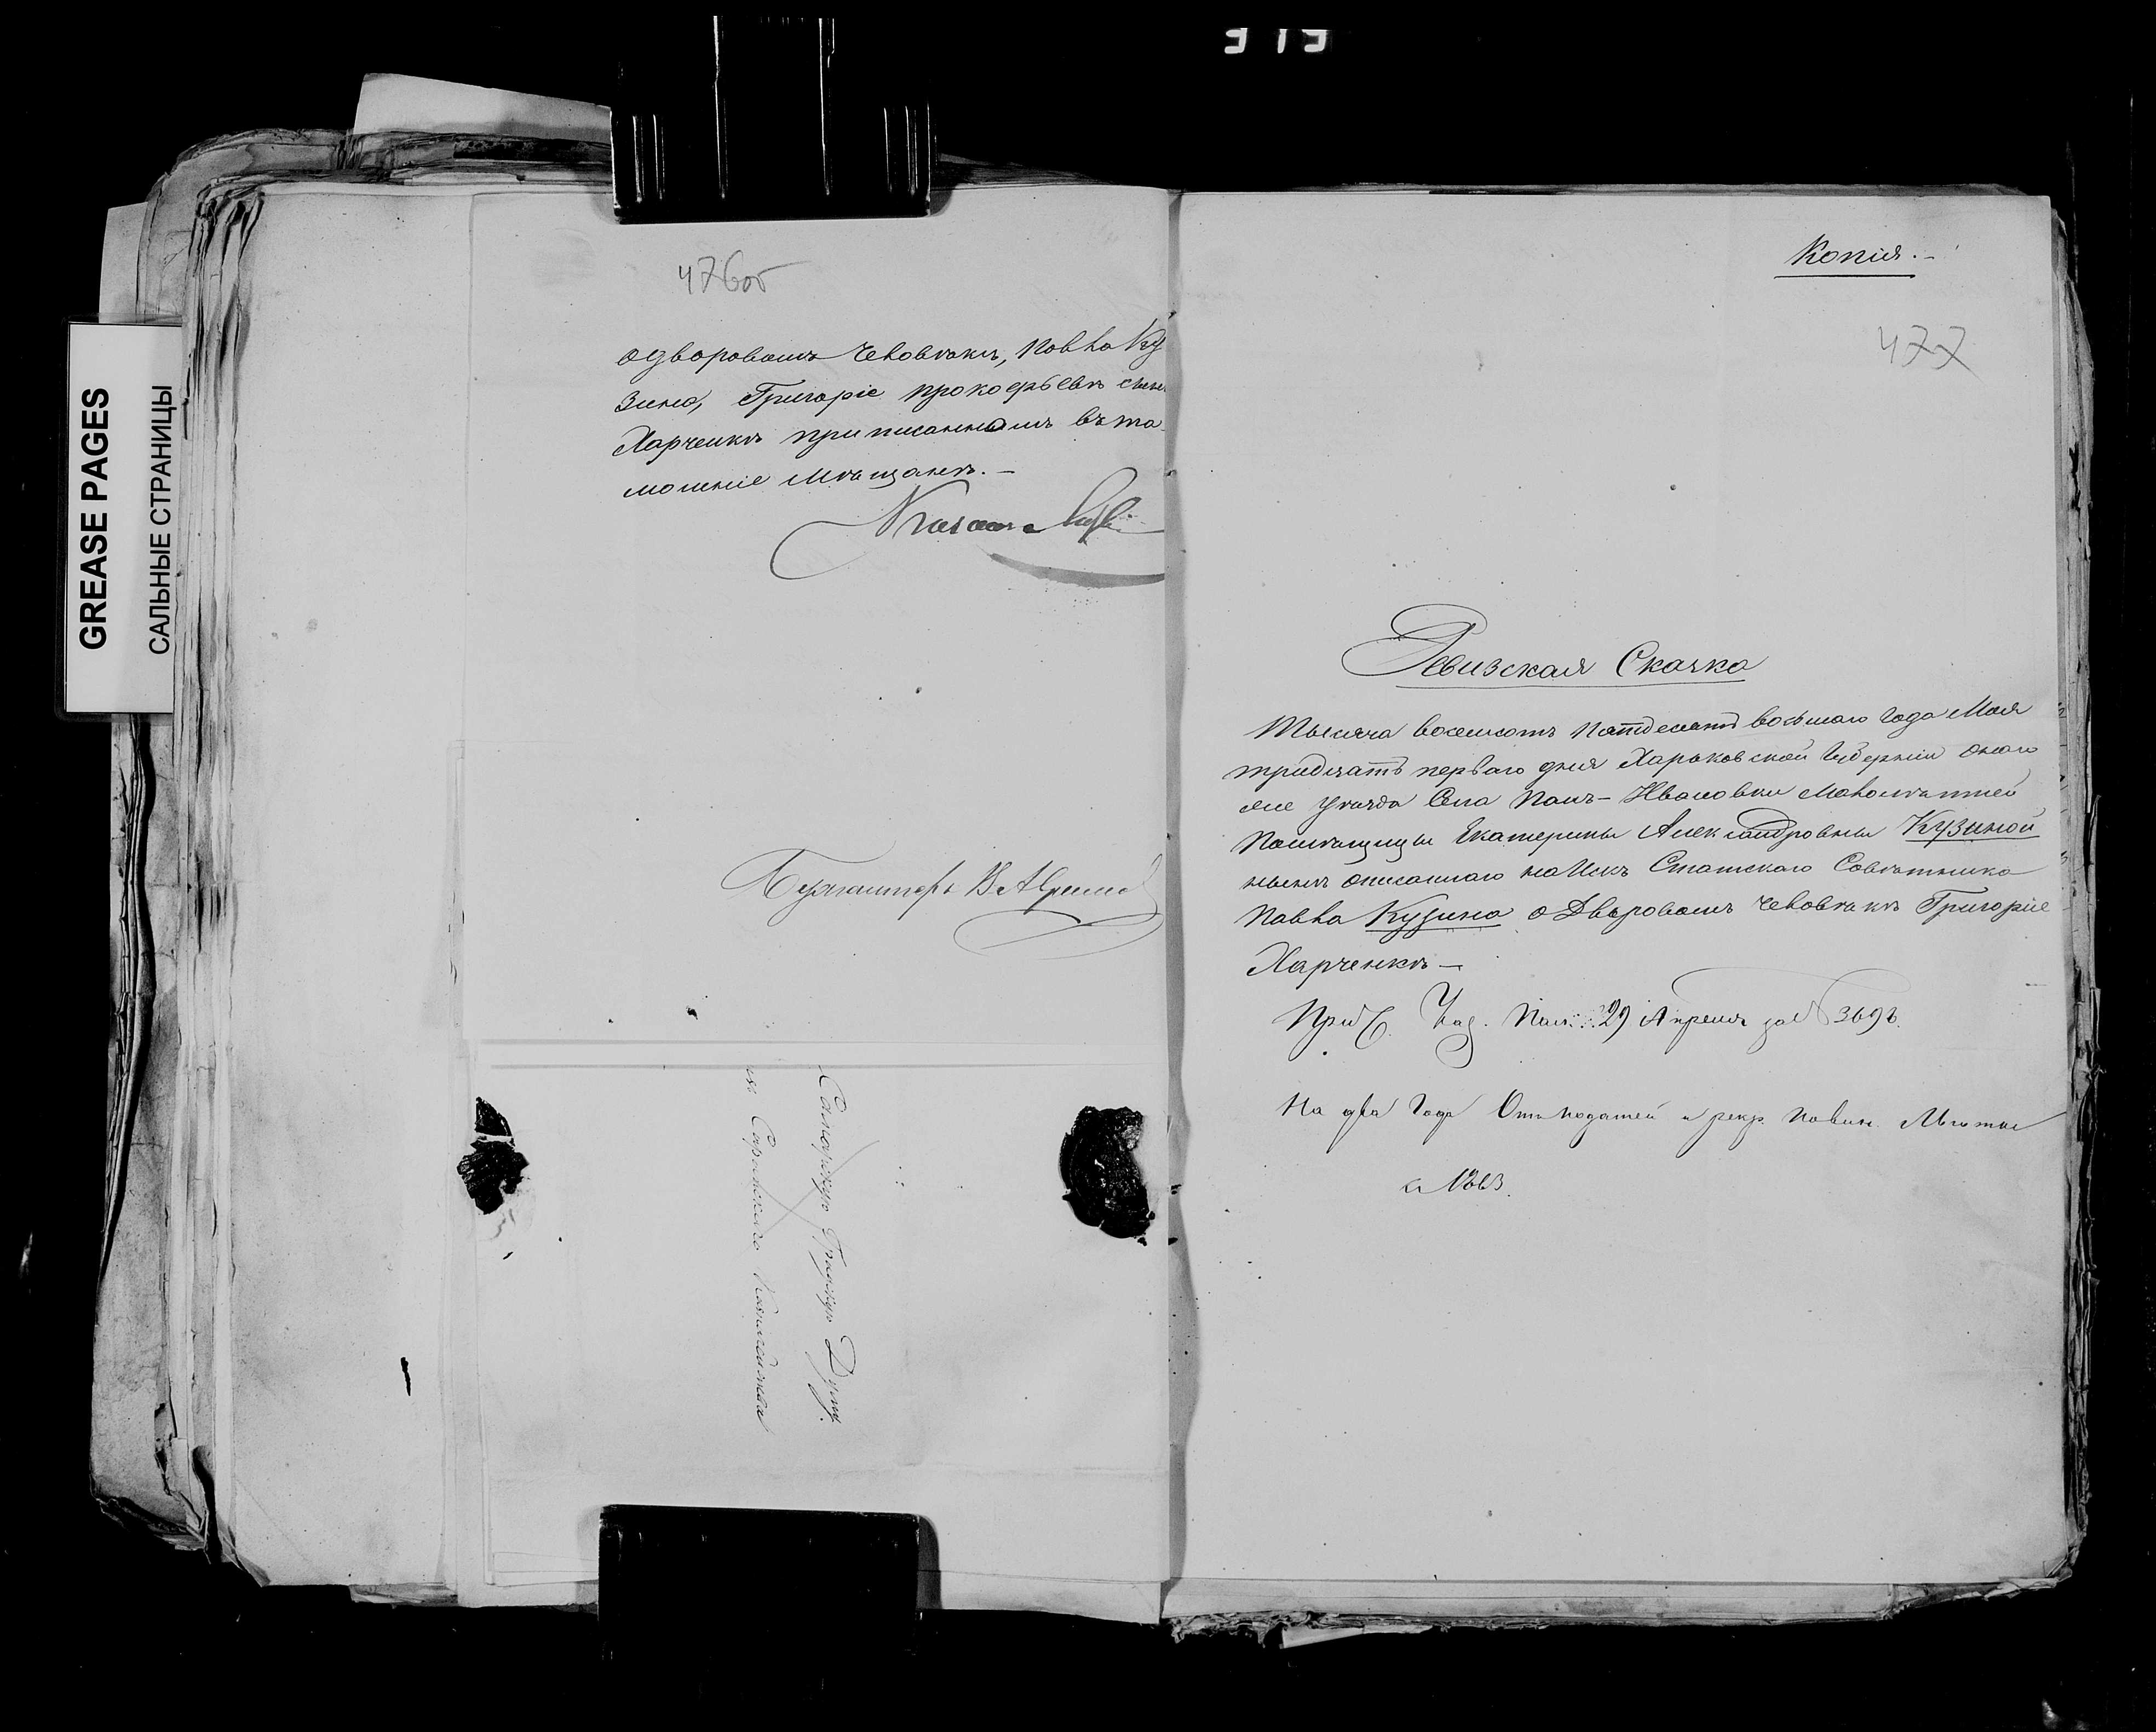 919
GREASE PAGES
САЛЬНЫЕ СТРАНИЦЫ
476об
одворовомъ человѣкѣ, Павла Ку
зина, Григоріе Прокофьевѣ сынѣ
Харченкѣ приписанномъ въ та
мошніе мѣщане.—
Бухгалтеръ
Градскую Думу.
Казначейства
Копія.-
477
Ревизская Сказка
Тысяча восемсотъ пятдесятъ восьмаго года Мая
тридцать перваго дня Харьковской Губерніи оного
же уѣзда Села Малолѣтней
Помѣщицы Екатерины Александровны Кузиной
нынѣ описаннаго Статскаго Совѣтника
Павла Кузина о Дворовомъ человѣкѣ Григоріе
Харченкѣ—
При Каз. Пал. 29 Апреля за № 3692.
На два года Отъ податей и рекр. повин. Льготы
с 1863.